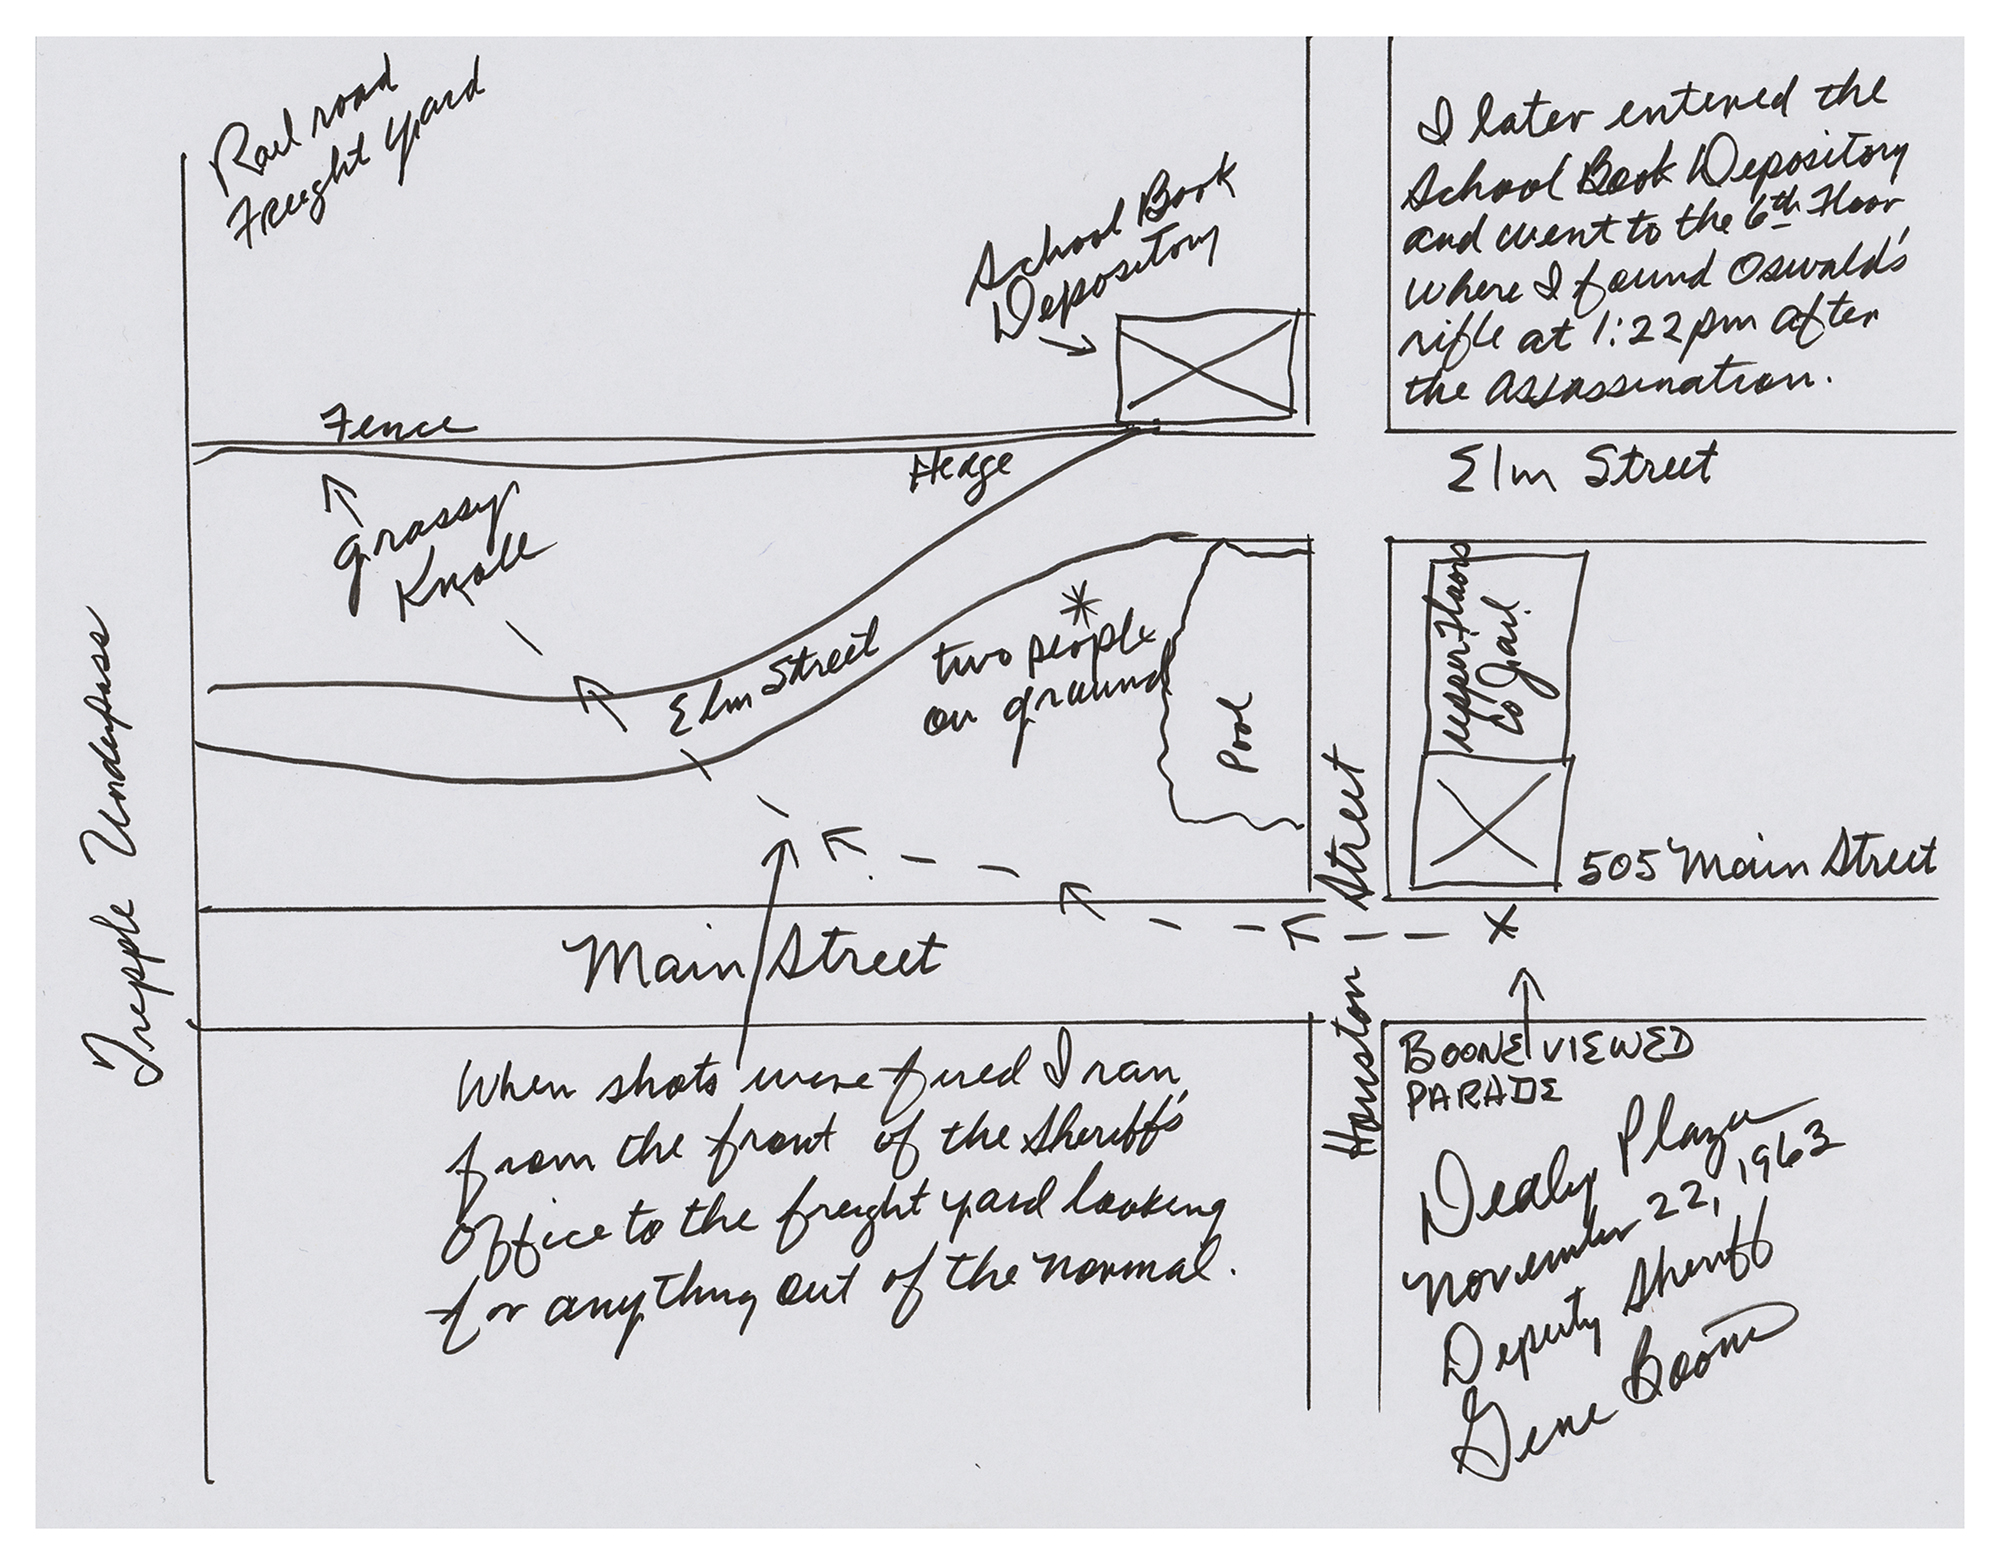 Rail road
Freight yard
I later entered the
School Book Depository
and went to the 6th Floor
where I found Oswald's
rifle at 1:22 pm after
the assassination.
School Book
Depository
Fence
Hedge
Elm Street
grassy
Knoll
upper Floors
co Jail.
two people
on ground
Elm Street
Pool
Trepple Underpass
Houston Street
505 Main Street
Main Street
BOONE VIEWED
PARADE
When shots were fired I ran
from the front of the Sheriff's
Office to the freight yard looking
for anything out of the normal.
Dealy Plaza
November 22, 1963
Deputy Sheriff
Gene Boone